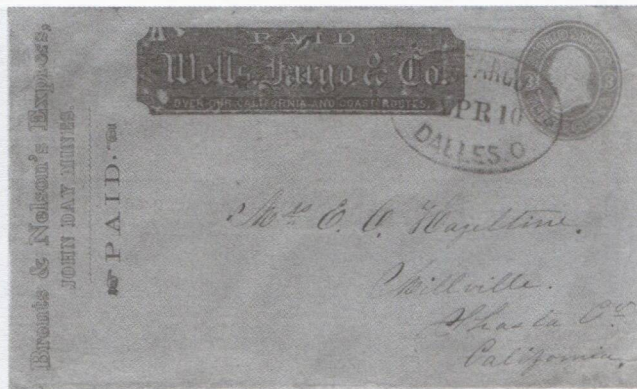 Bronts & Nelson's Express,
JOHN DAY MINES.
PAID.
PAID
Wells, Fargo & Co.
OVER OUR CALIFORNIA AND COAST ROUTES.
FARGO
APR 10
DALLES. O
Mrs E. A. Hazeltine.
Millville.
Shasta Co.
California.